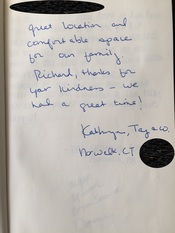 great location and
comfortable space
for our family.
Richard, thanks for
your kindness – we
had a great time!
Kathryn,
Norwalk, CT